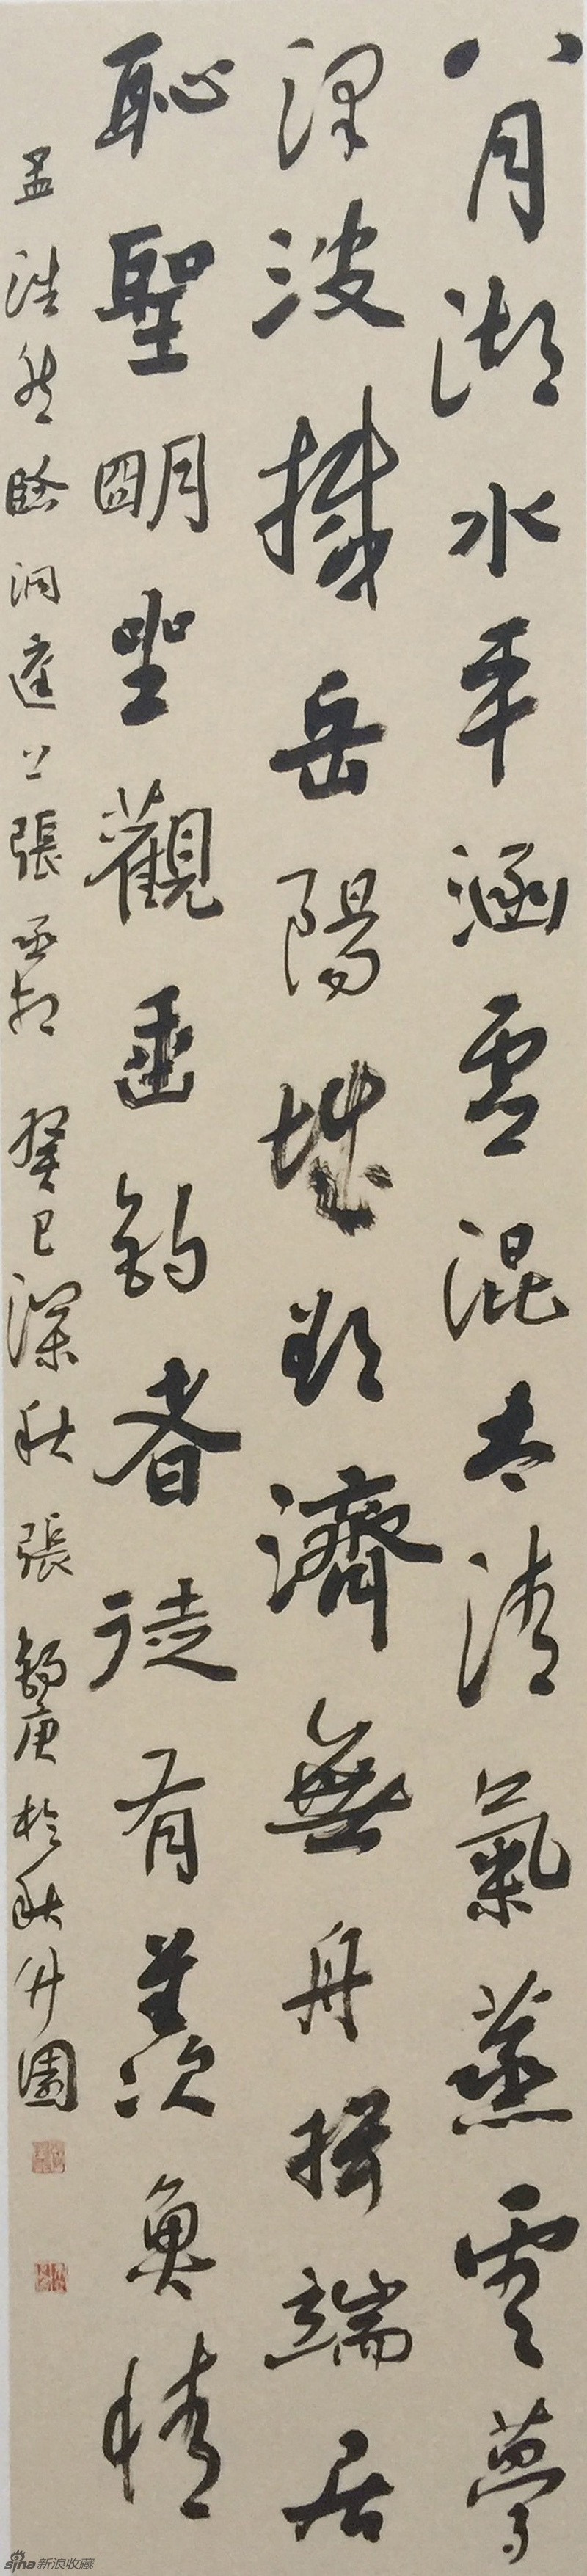 八月湖水平涵虛混太清氣蒸雲夢
澤波撼岳陽城欲濟無舟楫端居
恥聖明坐觀垂釣者徒有羨魚情
孟浩然臨洞庭上張丞相 癸巳深秋張錫庚於秋竹園
sina新浪收藏